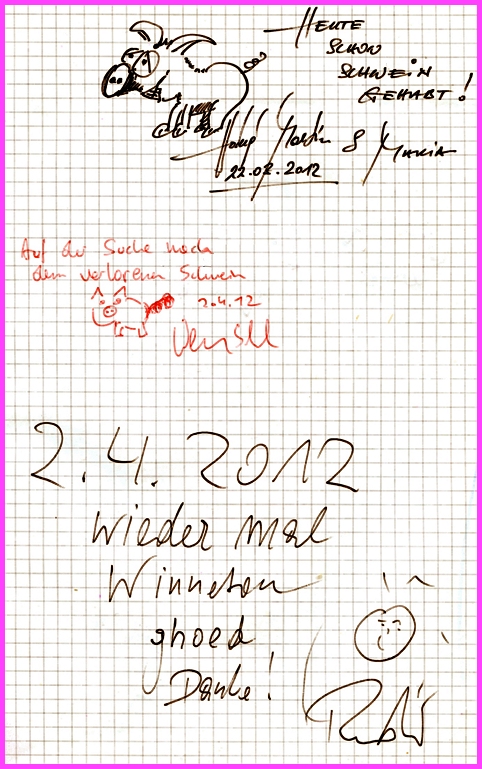 HEUTE
SCHON
SCHWEIN
GEHABT!
Martin & MARIA
22.02.2012
Auf der Suche nach
dem verlorenen Schwein
2.4.12
2.4.2012
Wieder mal
Winnetou
ghoed
Danke!